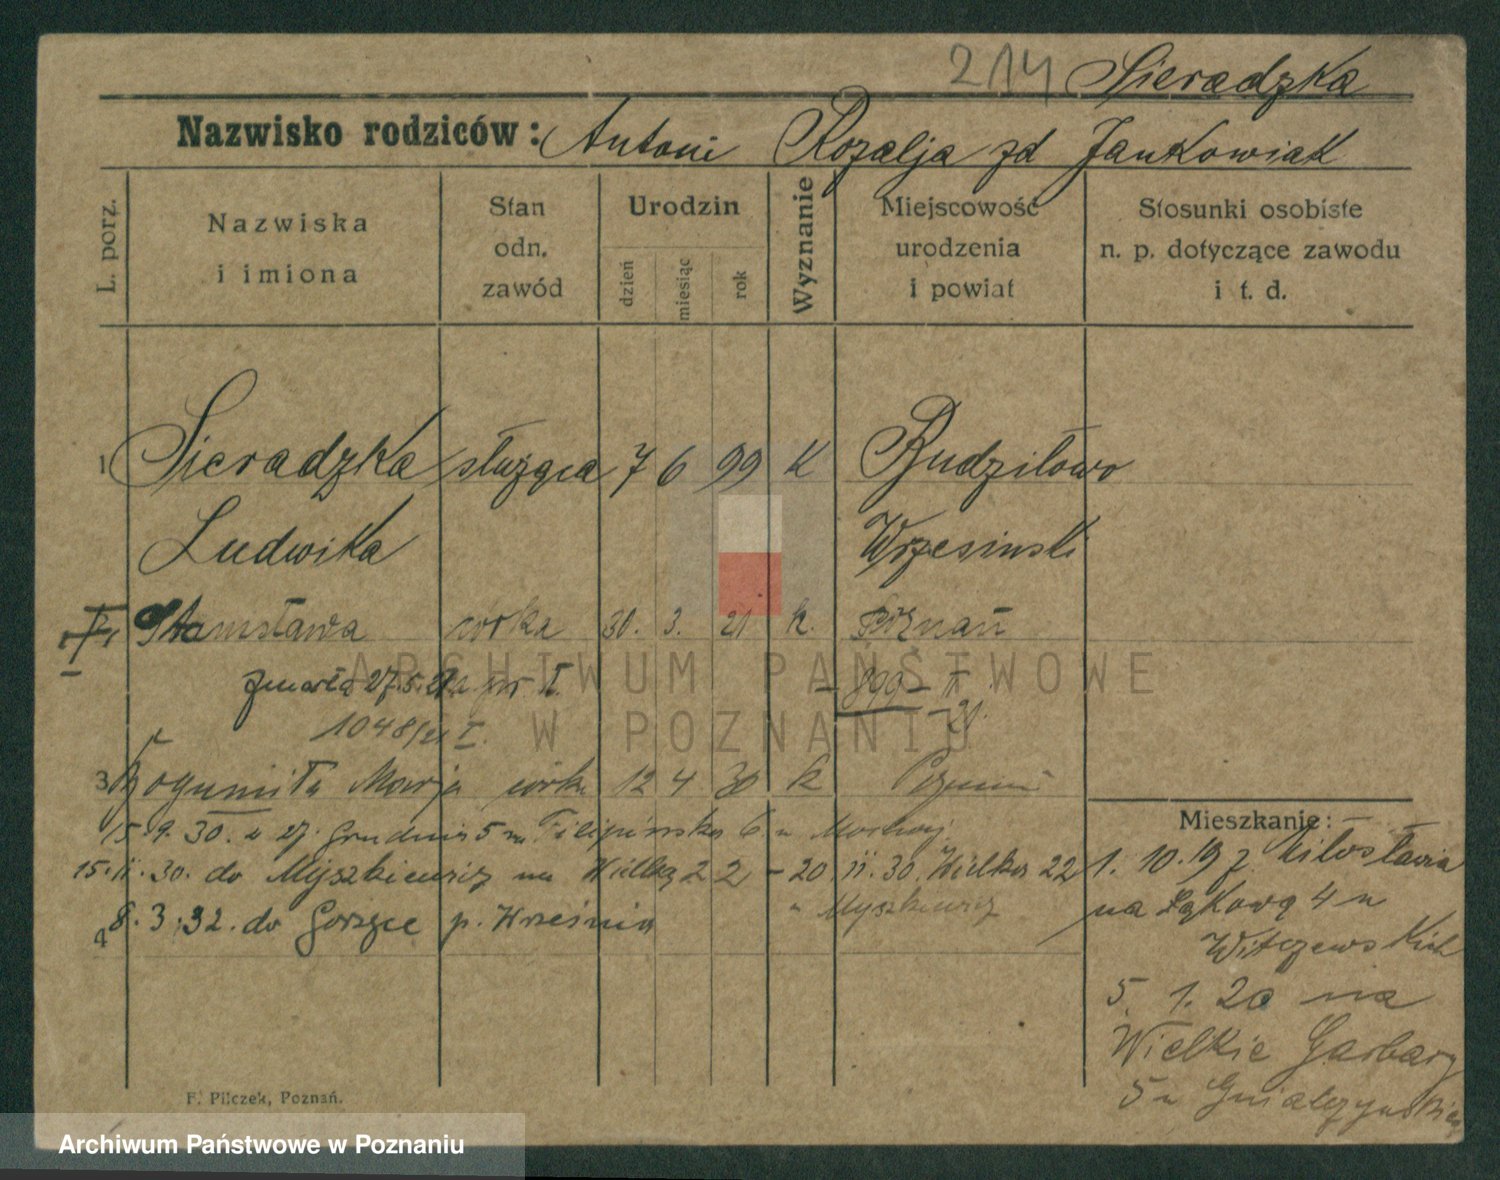 214 Sieradzka
Nazwisko rodziców: Antoni Rozalja zd Jankowiak
L. porz.
Nazwiska
i imiona
Stan
odn.
zawód
Urodzin
dzień
miesiąc
rok
Wyznanie
Miejscowość
urodzenia
i powiat
Stosunki osobiste
n. p. dotyczące zawodu
i t. d.
1 Sieradzka służąca 7 6 99 K Budziłowo
Ludwika Wrzesinski
Stanisława córka 30. 3. 21 k. Poznań
zmarła 27.5.21
- 899 - II
21.
1048/21 I.
3 Bogumiła Marja córka 12 4 30 k Poznań
15.9.30. u 27. Grudnia 5 Filipińska 6
15.11.30. do Myszkiewicz na Wielką 22 - 20 11.30. Wielka 22
u Myszkiewicz
8.3.32. do Gorzyce p. Września
4
Mieszkanie:
1. 10. 19 z Miłosławia
na Łąkową 4 u
Witczewskich
5. 1. 20 na
Wielkie Garbary
5 u
F. Pilczek, Poznań.
ARCHIWUM PAŃSTWOWE
W POZNANIU
Archiwum Państwowe w Poznaniu